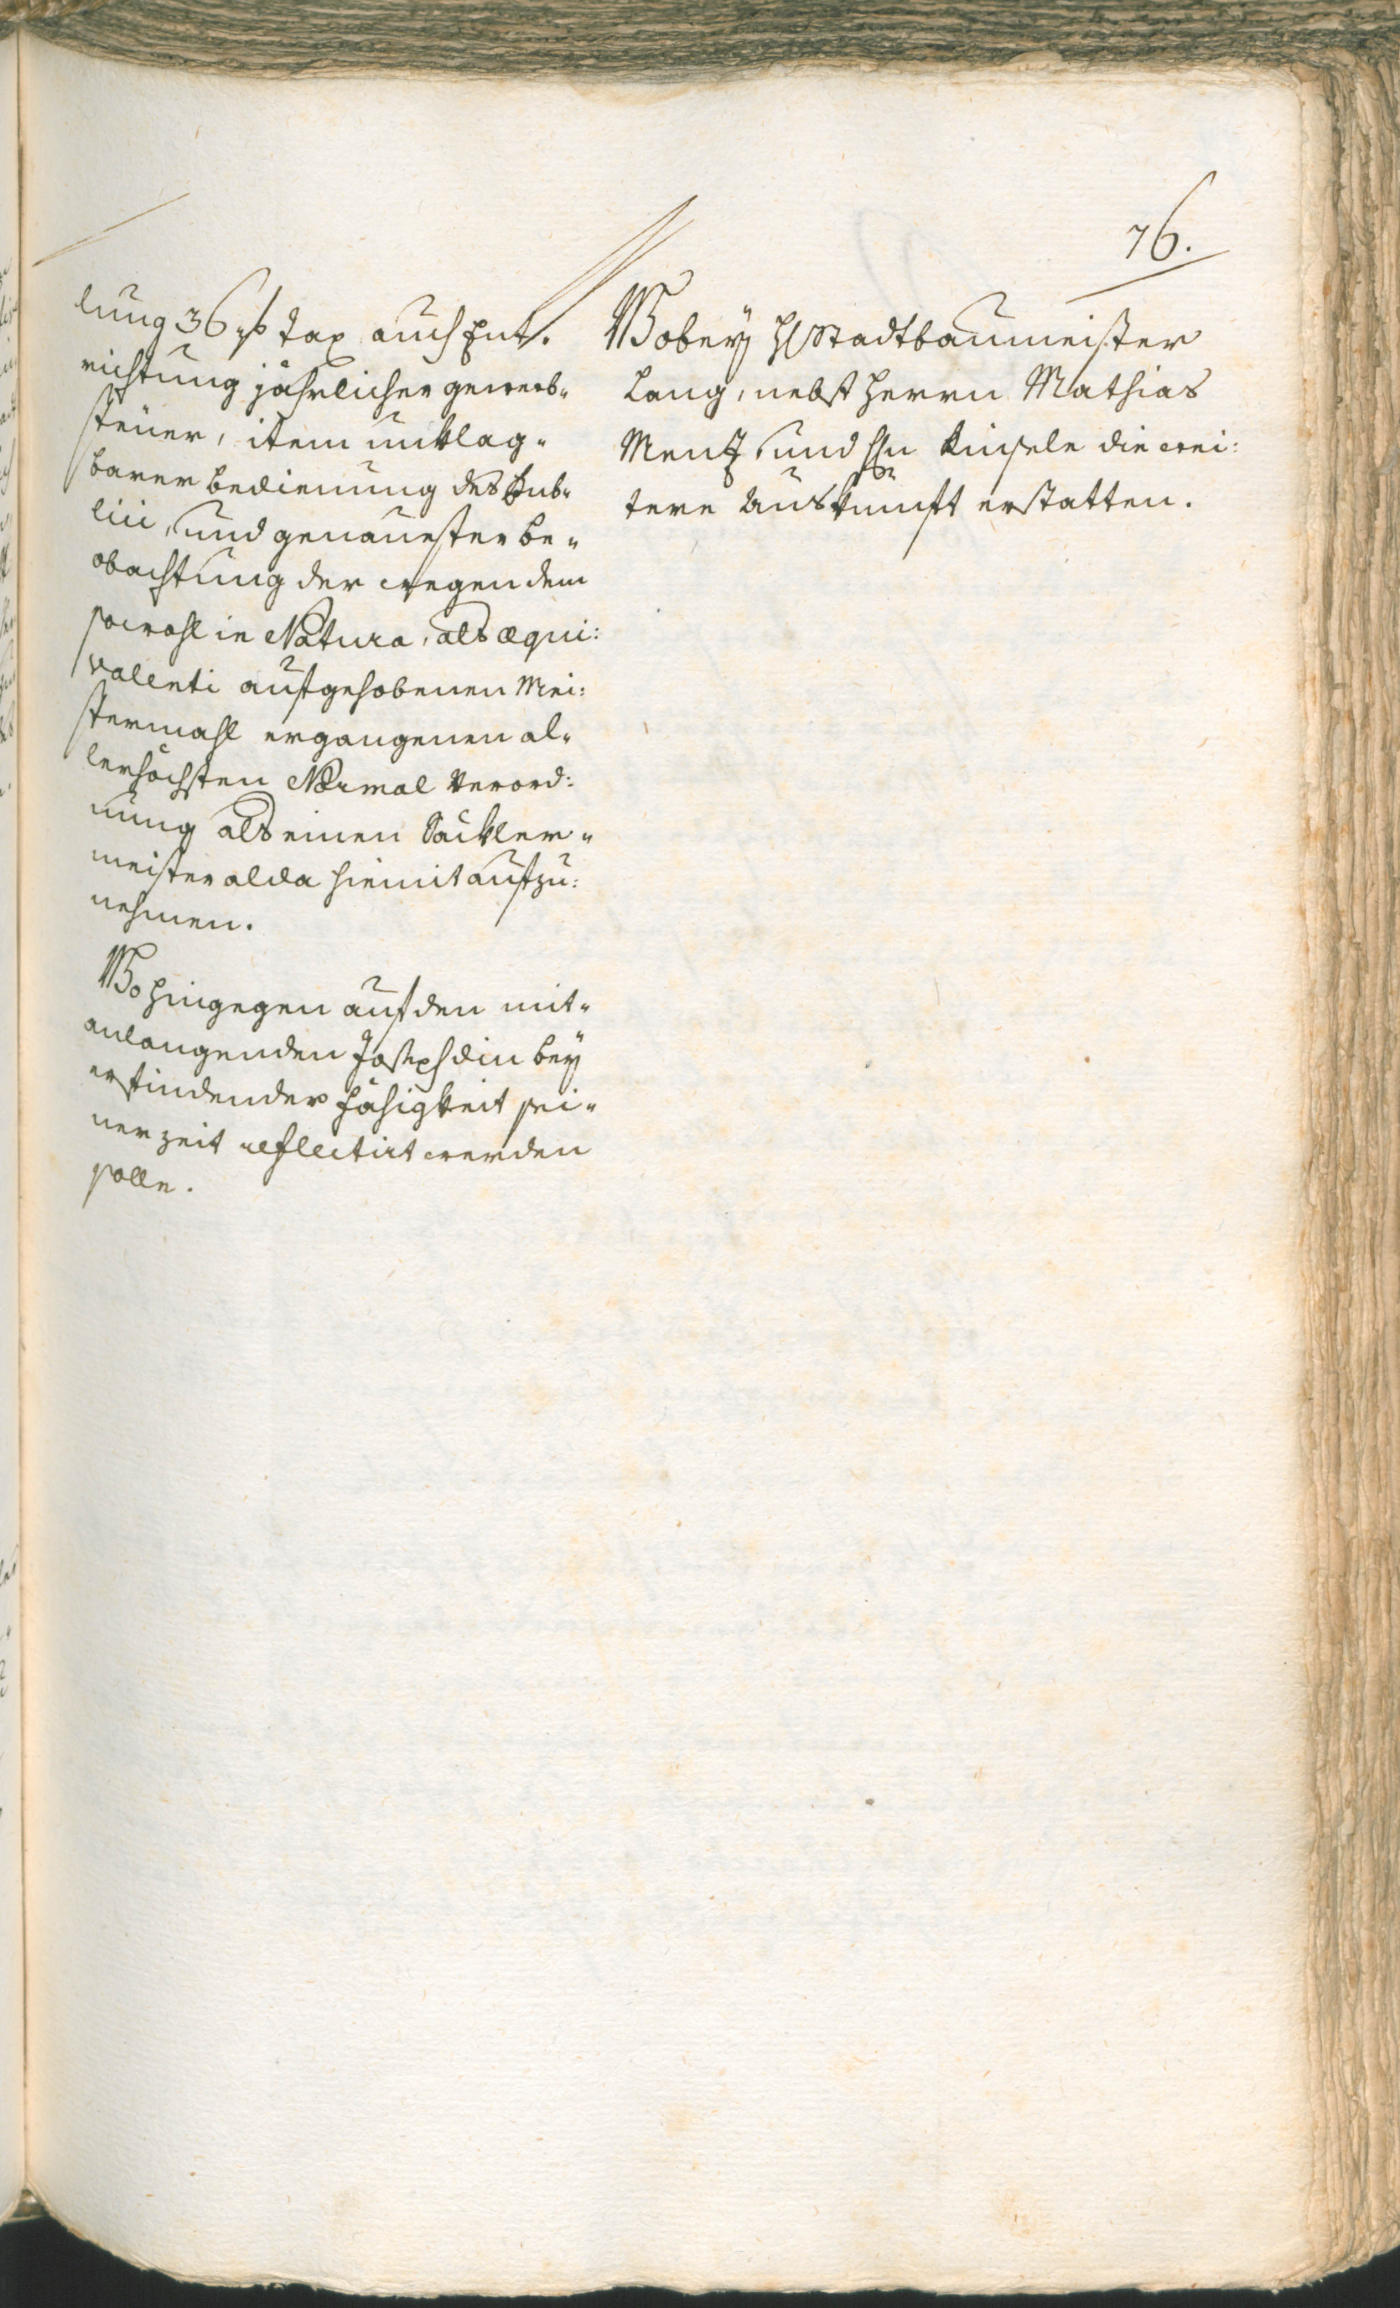 76.
lung 36 xr Tax auch Ent-
richtung jährlicher gewerb-
steüer, item unklag-
barer bedienung des Pub-
lici, und genauester be-
obachtung der wegen dem
sowohl in Natura, als aequi:
valenti aufgehobenen Mei:
stermahl ergangenen al-
lerhöchsten Normal Verord:
nung als einen Säckler-
meister alda hiemit aufzu:
nehmen.
Wo hingegen auf den mit-
anlangenden Joseph din bey
erfindender fähigkeit sei-
ner zeit reflectirt werden
solle.
Wobey H Stadtbaumeister
Lang, nebst Herrn Mathias
Menz, und Hn Kinsele die wei:
tere Auskunft erstatten.